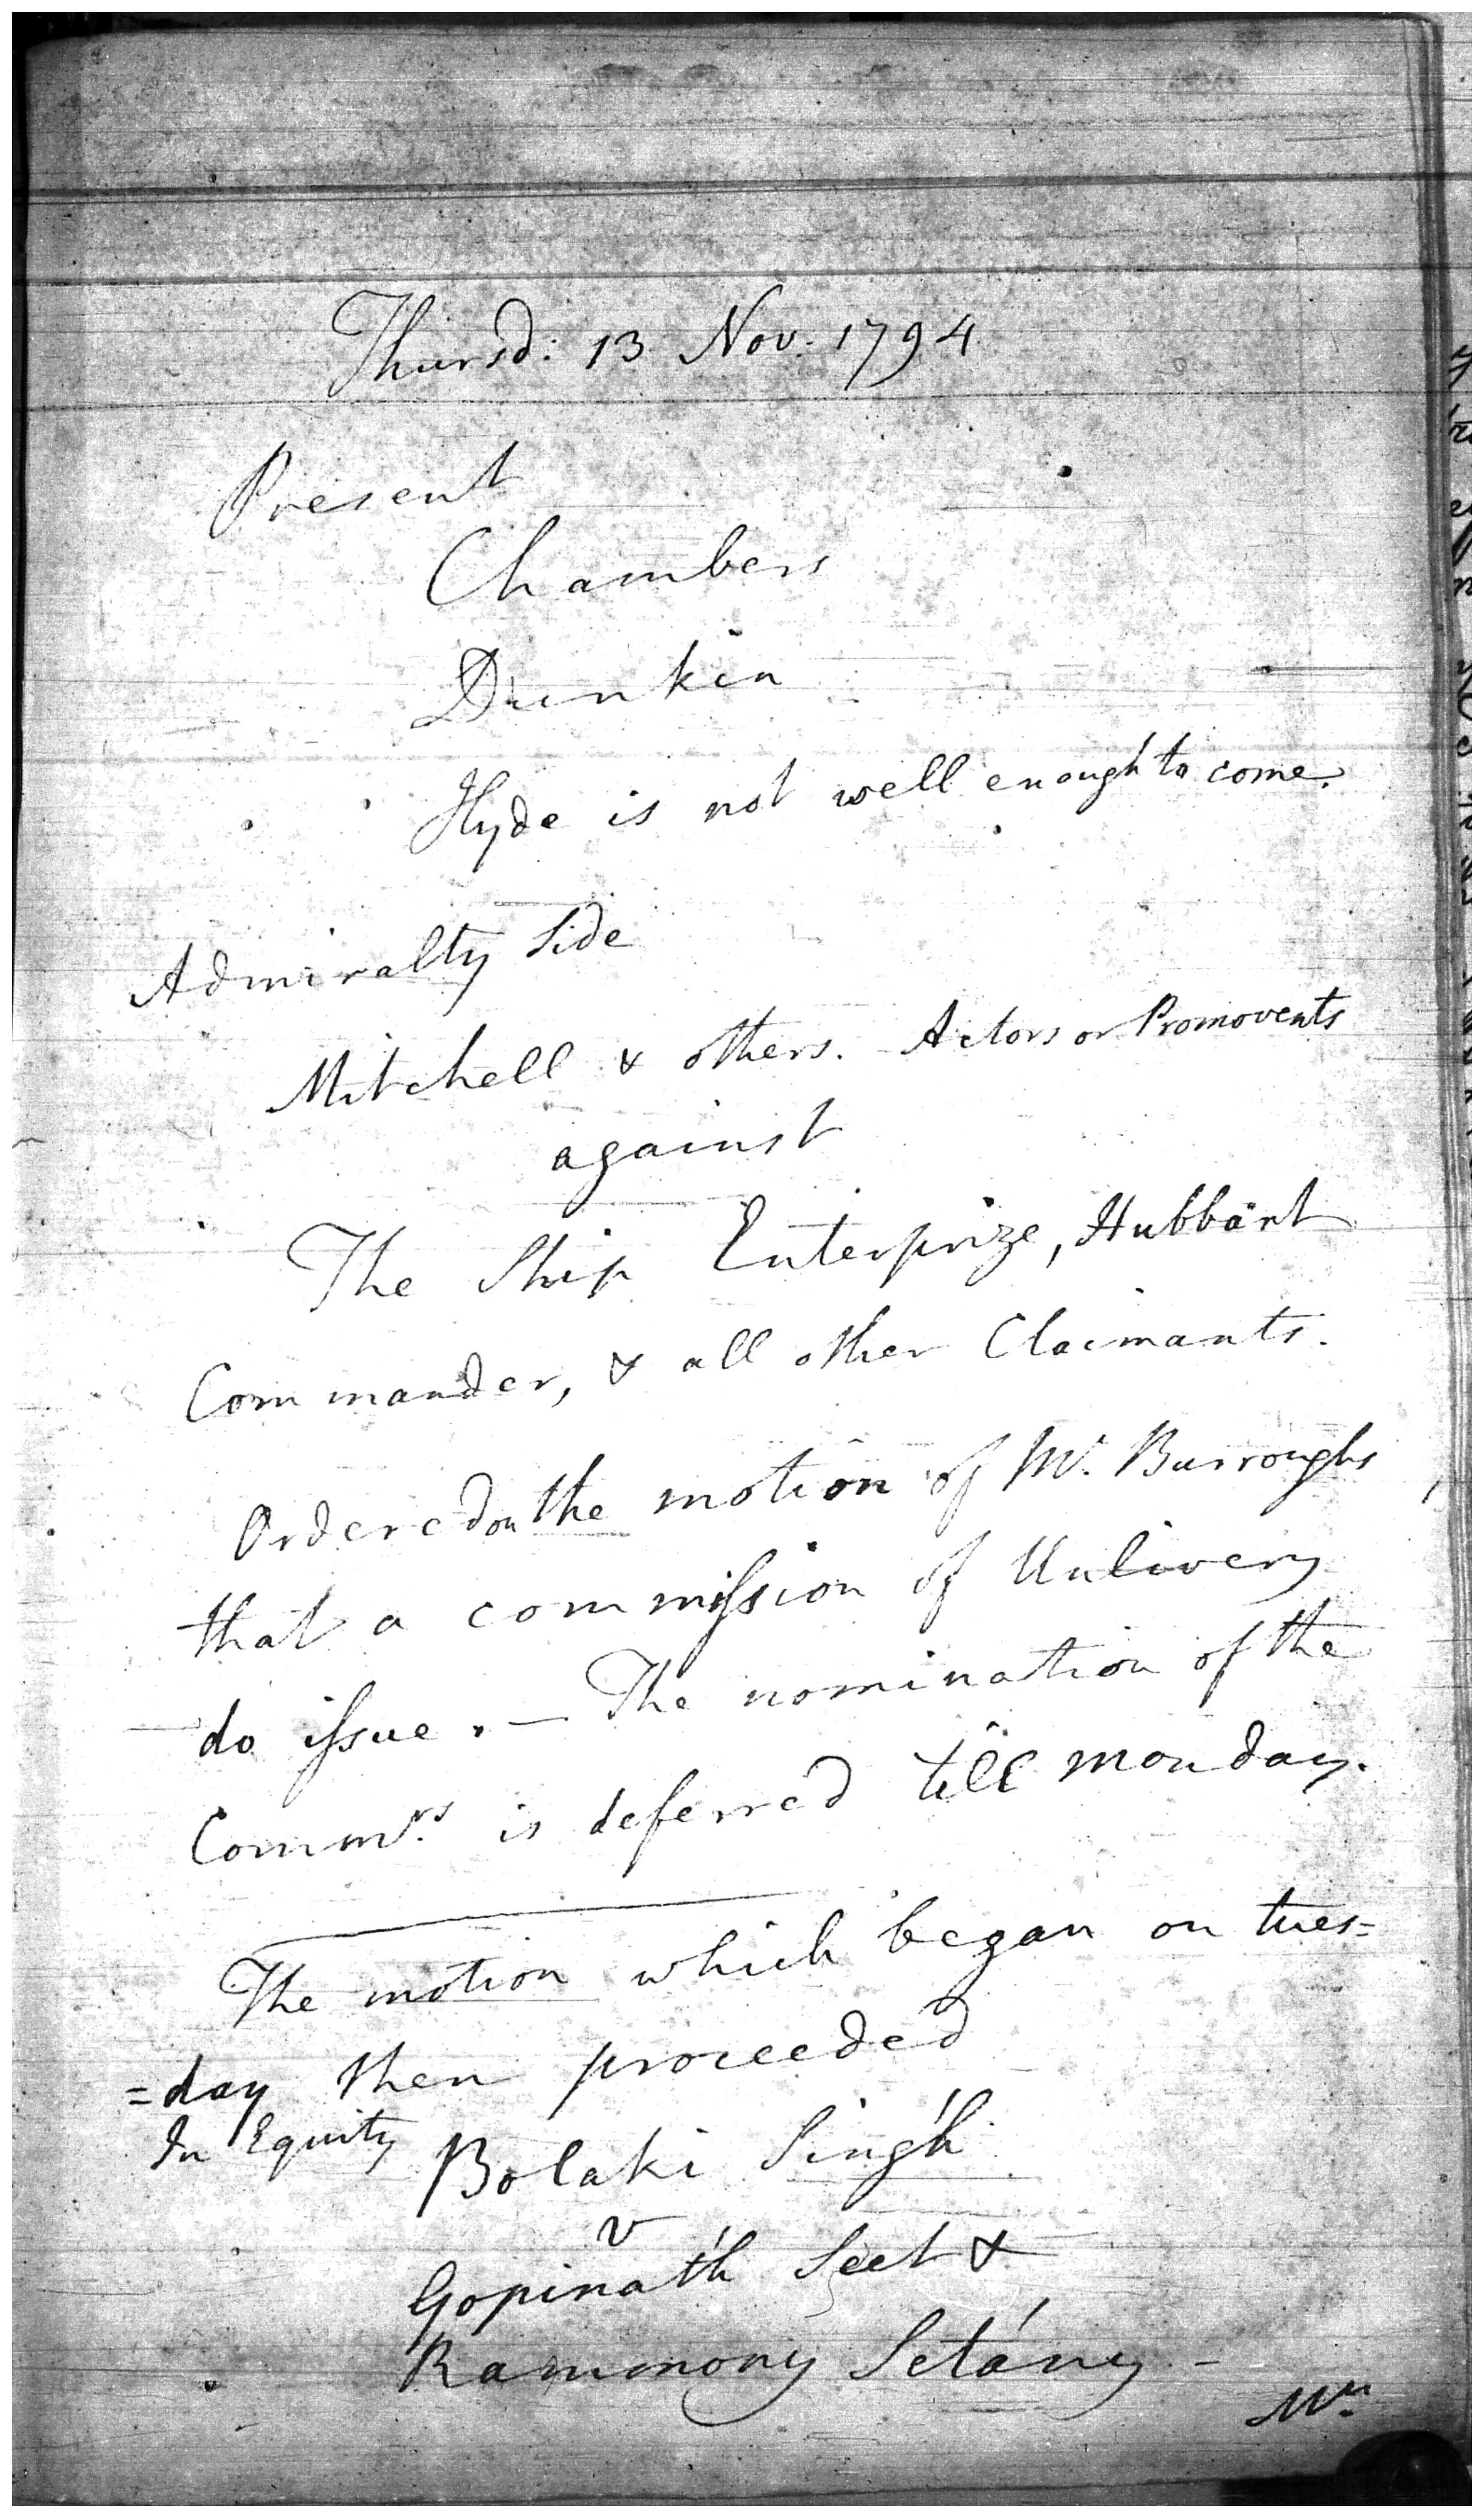 Thursd: 13 Nov: 1794
Present
Chambers
Dunkin
Hyde is not well enough to come.
Admiralty Side
Mitchell & others. Actors or Promovents
against
The Ship Enterprize, Hubbart
Commander, & all other Claimants.
Ordered on the motion of Mr. Burroughs
that a commission of Unlivery
do issue. — The nomination of the
Commrs. is deferred till monday.
The motion which began on tues=
=day then proceeded
In Equity
Bolaki Singh
v
Gopinath Seet &
Rammony Setány —
Mr.